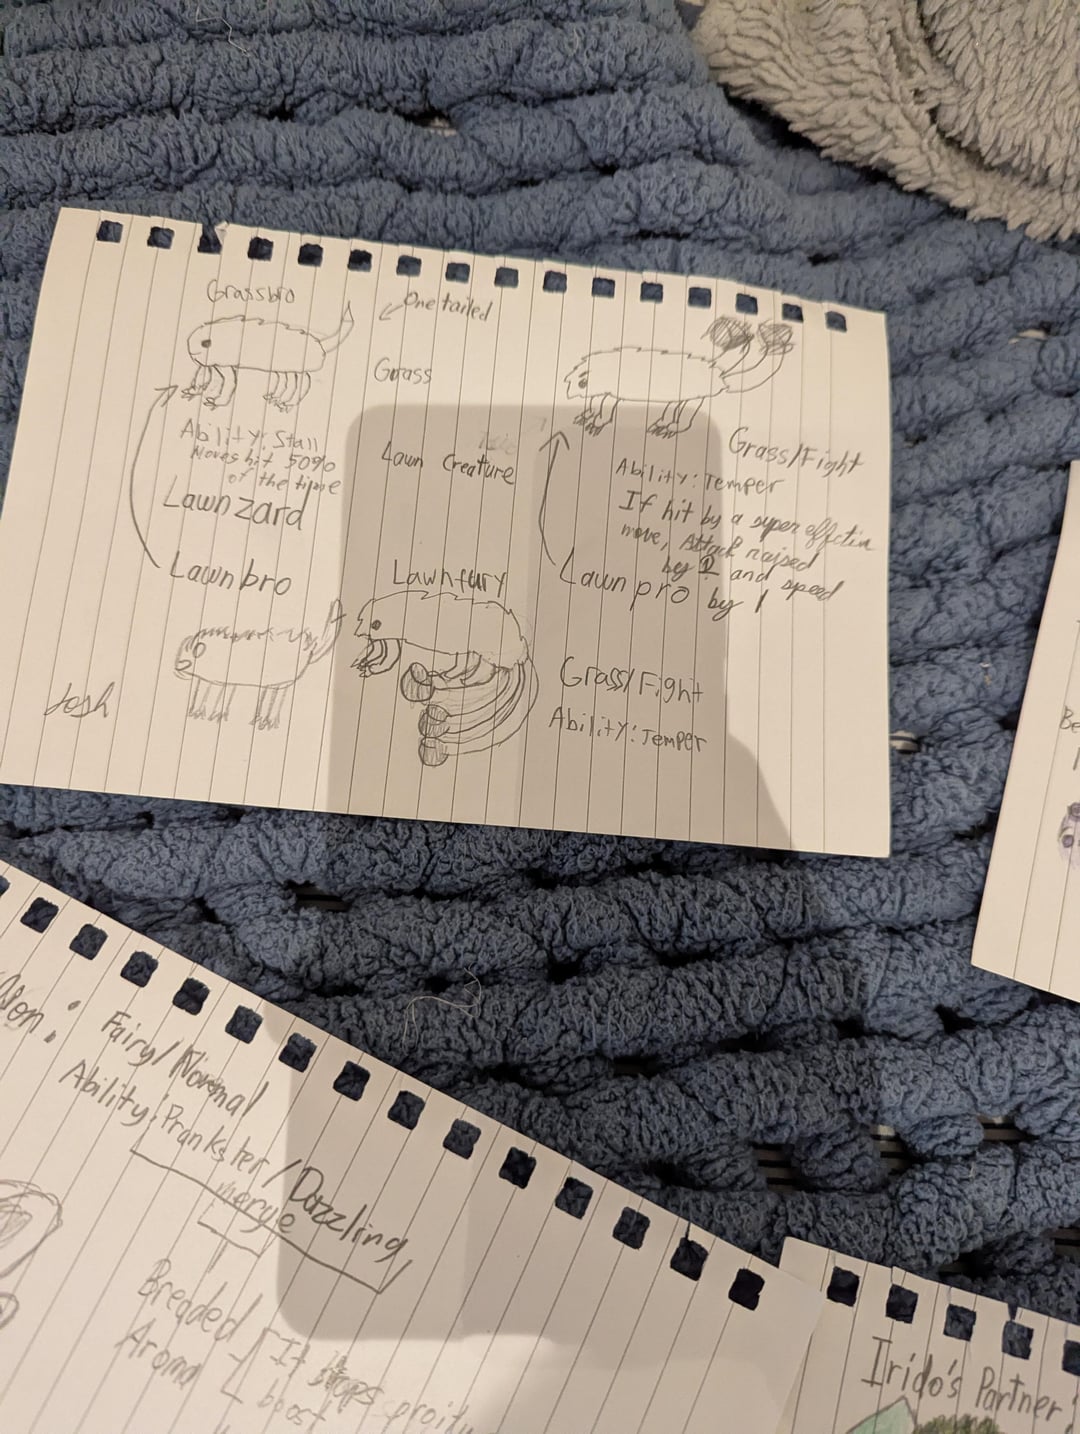 Grassbro
One tailed
Grass
Ability: Stall
Moves hit 50%
of the time
Lawnzard
Lawn Creature
Lawnbro
Lawnfury
Josh
Grass/Fight
Ability: Temper
If hit by a super effective
move, Attack raised
by 2 and speed
by 1
Lawnpro
Grass/Fight
Ability: Temper
Fairy/Normal
Ability: Prankster/Dazzling
merge
Breaded
Aroma
It stops
boost
Irido's Partner: